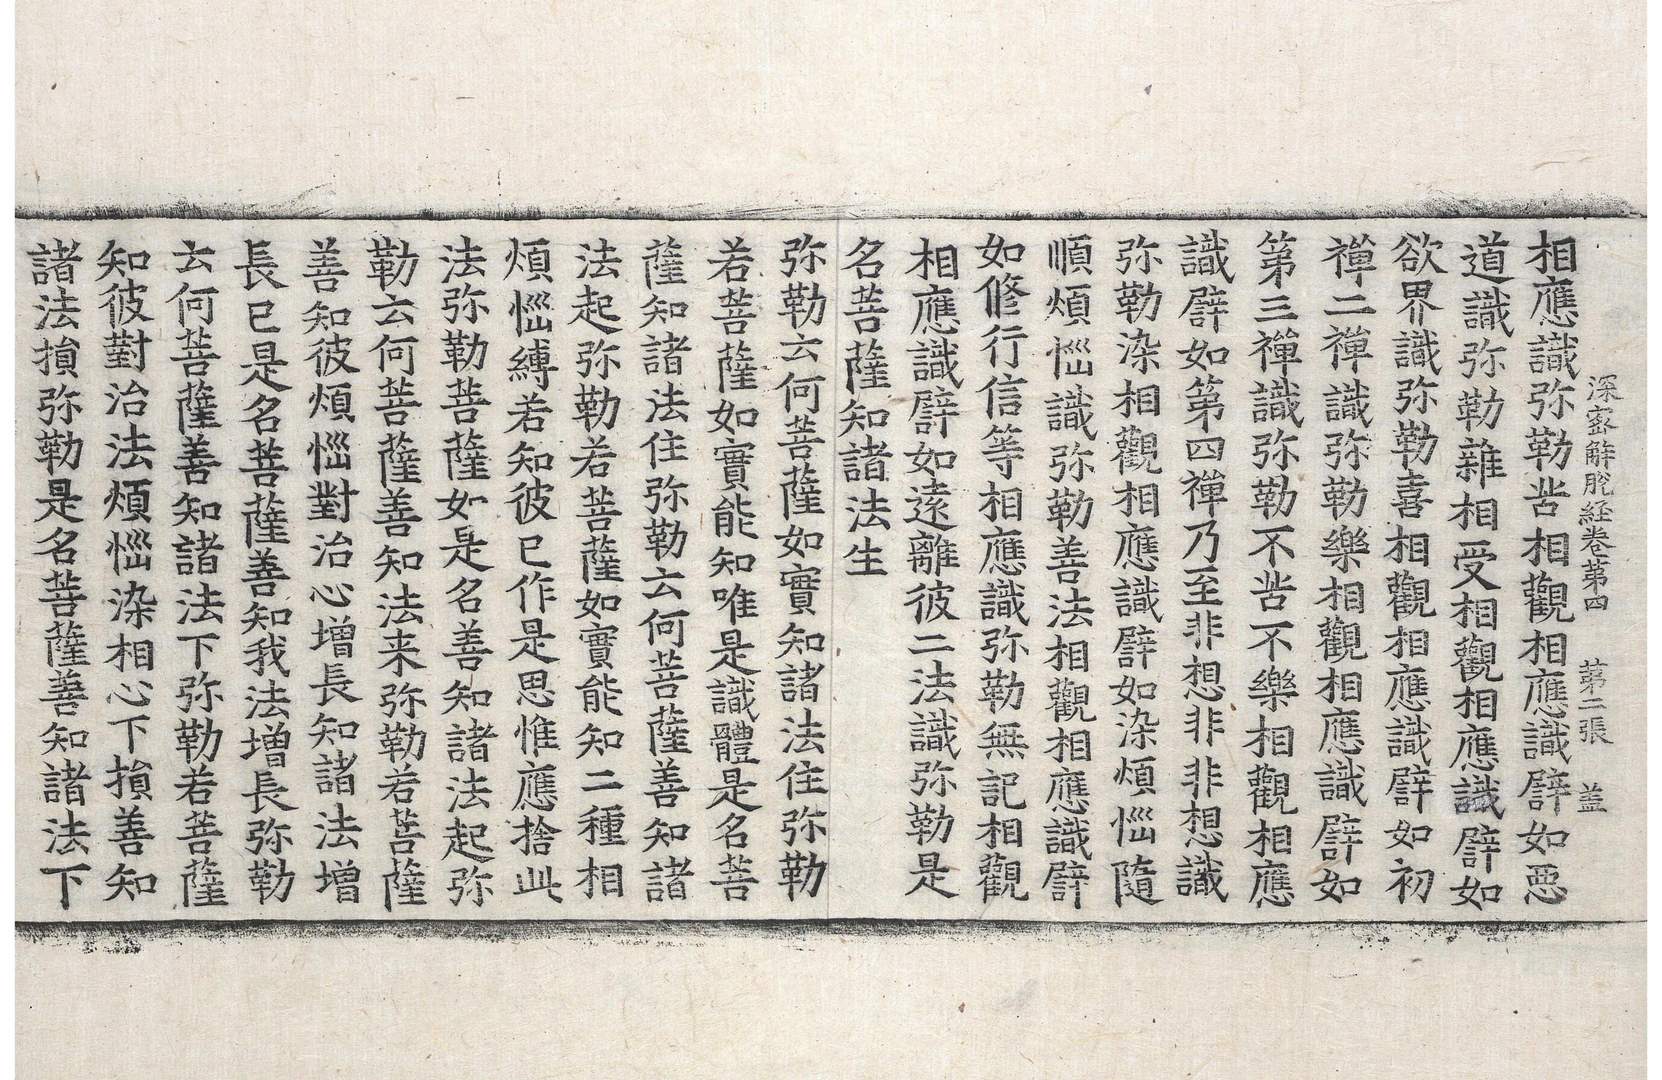 深密解脫経卷第四　第二張　盖
相應識弥勒苦相觀相應識譬如惡
道識弥勒雜相受相觀相應識譬如
欲界識弥勒喜相觀相應識譬如初
禪二禪識弥勒樂相觀相應識譬如
第三禪識弥勒不苦不樂相觀相應
識譬如第四禪乃至非想非非想識
弥勒染相觀相應識譬如染煩惱隨
順煩惱識弥勒善法相觀相應識譬
如修行信等相應識弥勒無記相觀
相應識譬如遠離彼二法識弥勒是
名菩薩知諸法生
弥勒云何菩薩如實知諸法住弥勒
若菩薩如實能知唯是識體是名菩
薩知諸法住弥勒云何菩薩善知諸
法起弥勒若菩薩如實能知二種相
煩惱縛若知彼已作是思惟應捨此
法弥勒菩薩如是名善知諸法起弥
勒云何菩薩善知法来弥勒若菩薩
善知彼煩惱對治心增長知諸法增
長已是名菩薩善知我法增長弥勒
云何菩薩善知諸法下弥勒若菩薩
知彼對治法煩惱染相心下損善知
諸法損弥勒是名菩薩善知諸法下